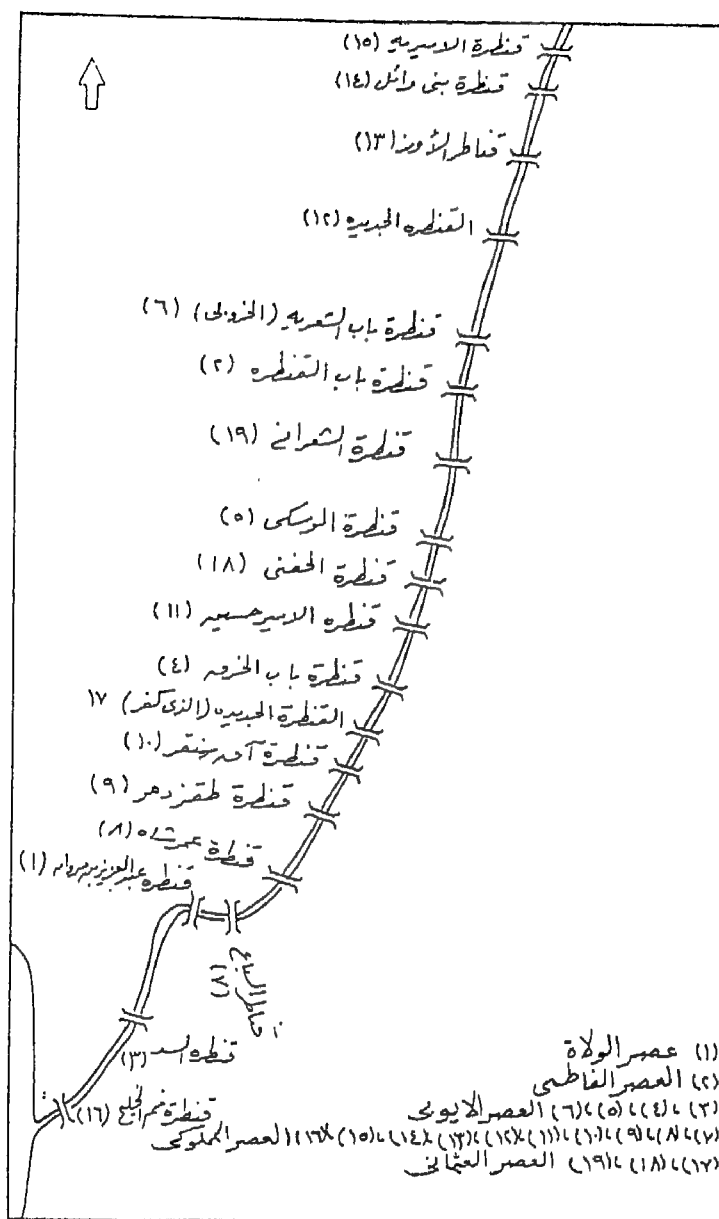 قنطرة الاميريه (١٥)
قنطرة بنى وائل (١٤)
قناطر الأوز (١٣)
القنطره الجديده (١٢)
قنطرة باب الشعريه (الخروبى) (٦)
قنطرة باب القنطره (٢)
قنطرة الشعرانى (١٩)
قنطرة الموسكى (٥)
قنطرة الحفنى (١٨)
قنطره الامير حسين (١١)
قنطرة باب الخرق (٤)
القنطرة الجديده (الذى كفر) ١٧
قنطرة آق سنقر (١٠)
قنطرة طقزدمر (٩)
قنطرة عمر شاه (٨)
قنطره عبد العزيز بن مروان (١)
قناطر السباع
(٧)
قنطره السد (٣)
قنطرة فم الخليج (١٦)
(١) عصر الولاة
(٢) العصر الفاطمى
(٣)، (٤)، (٥)، (٦) العصر الايوبى
(٧)، (٨)، (٩)، (١٠)، (١١)، (١٢)، (١٣)، (١٤)، (١٥)، (١٦) العصر المملوكى
(١٧)، (١٨)، (١٩) العصر العثمانى